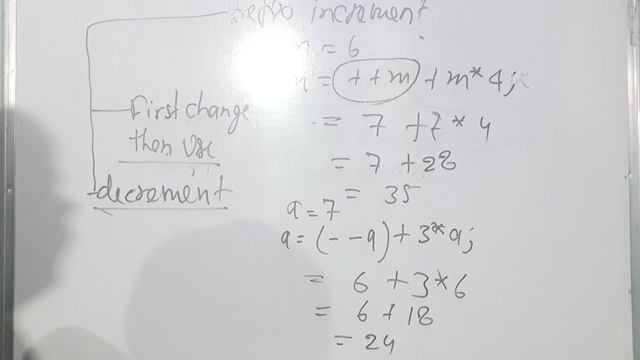 increment
= 6
= ++m + m*4;
First change
= 7 + 7 * 4
then use
= 7 + 28
decrement
= 35
a = 7
a = (--a) + 3*a;
= 6 + 3*6
= 6 + 18
= 24